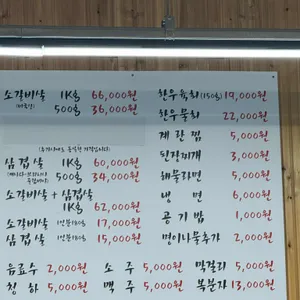 소갈비살 1Kg 66,000원
500g 36,000원
삼겹살 1Kg 60,000원
500g 34,000원
소갈비살+삼겹살
1Kg 62,000원
소갈비살 17,000원
삼겹살 15,000원
음료수 2,000원
청하 5,000원
소주 5,000원
맥주 5,000원
한우육회(150g) 19,000원
한우물회 22,000원
계란찜 5,000원
된장찌개 3,000원
해물라면 5,000원
냉면 6,000원
공기밥 1,000원
명이나물추가 2,000원
막걸리 5,000원
복분자 13,000원